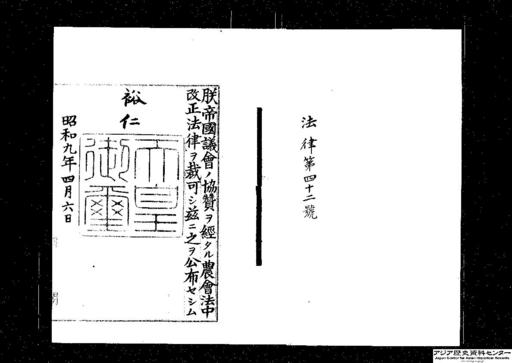 法律第四十二號
朕帝國議會ノ協贊ヲ經タル農會法中
改正法律ヲ裁可シ茲ニ之ヲ公布セシム
裕仁
天皇
御璽
昭和九年四月六日
アジア歴史資料センター
Japan Center for Asian Historical Records